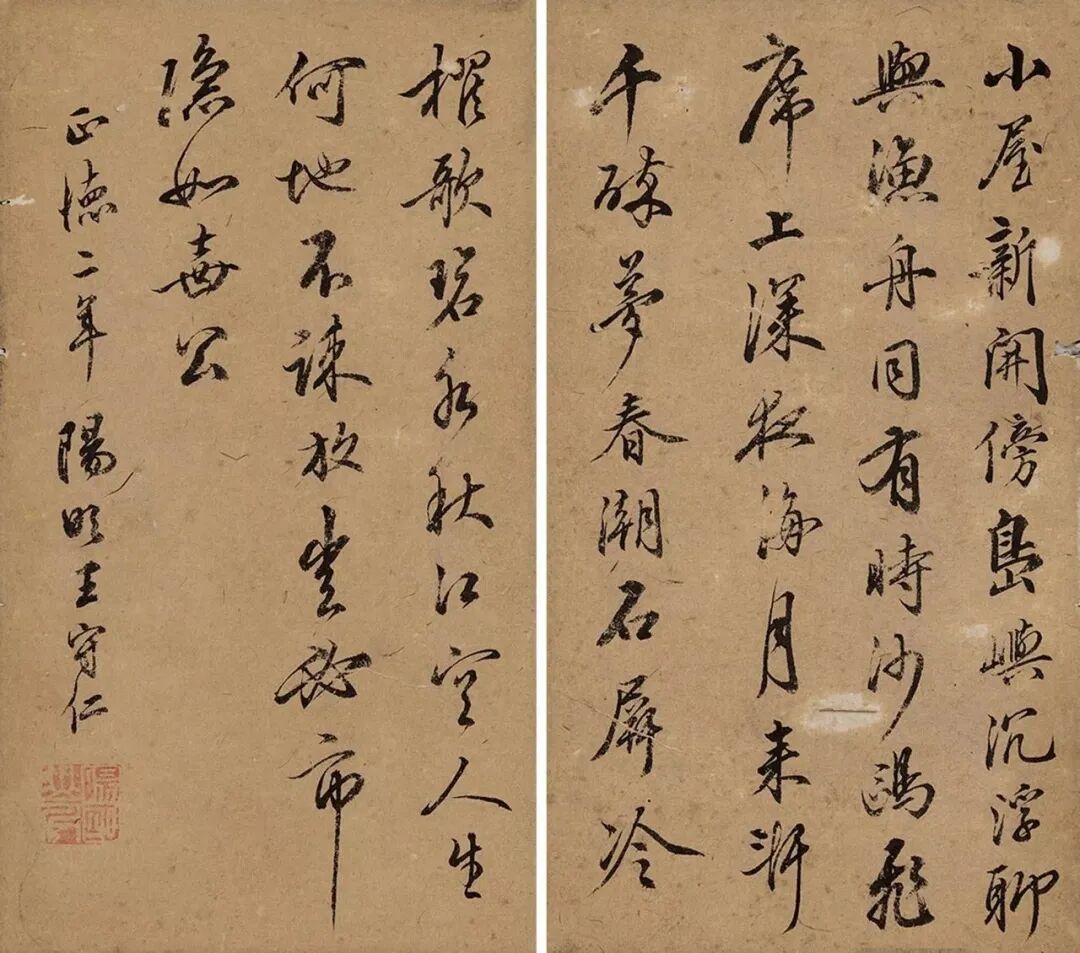 小屋新開傍島嶼沉浮聊
與漁舟同有時沙鷗飛
席上深夜海月来軒
中醉夢春潮石屏冷
櫂歌碧水秋江空人生
何地不疎放豈必市
隱如壺公
正德二年 陽明王守仁
陽明山人